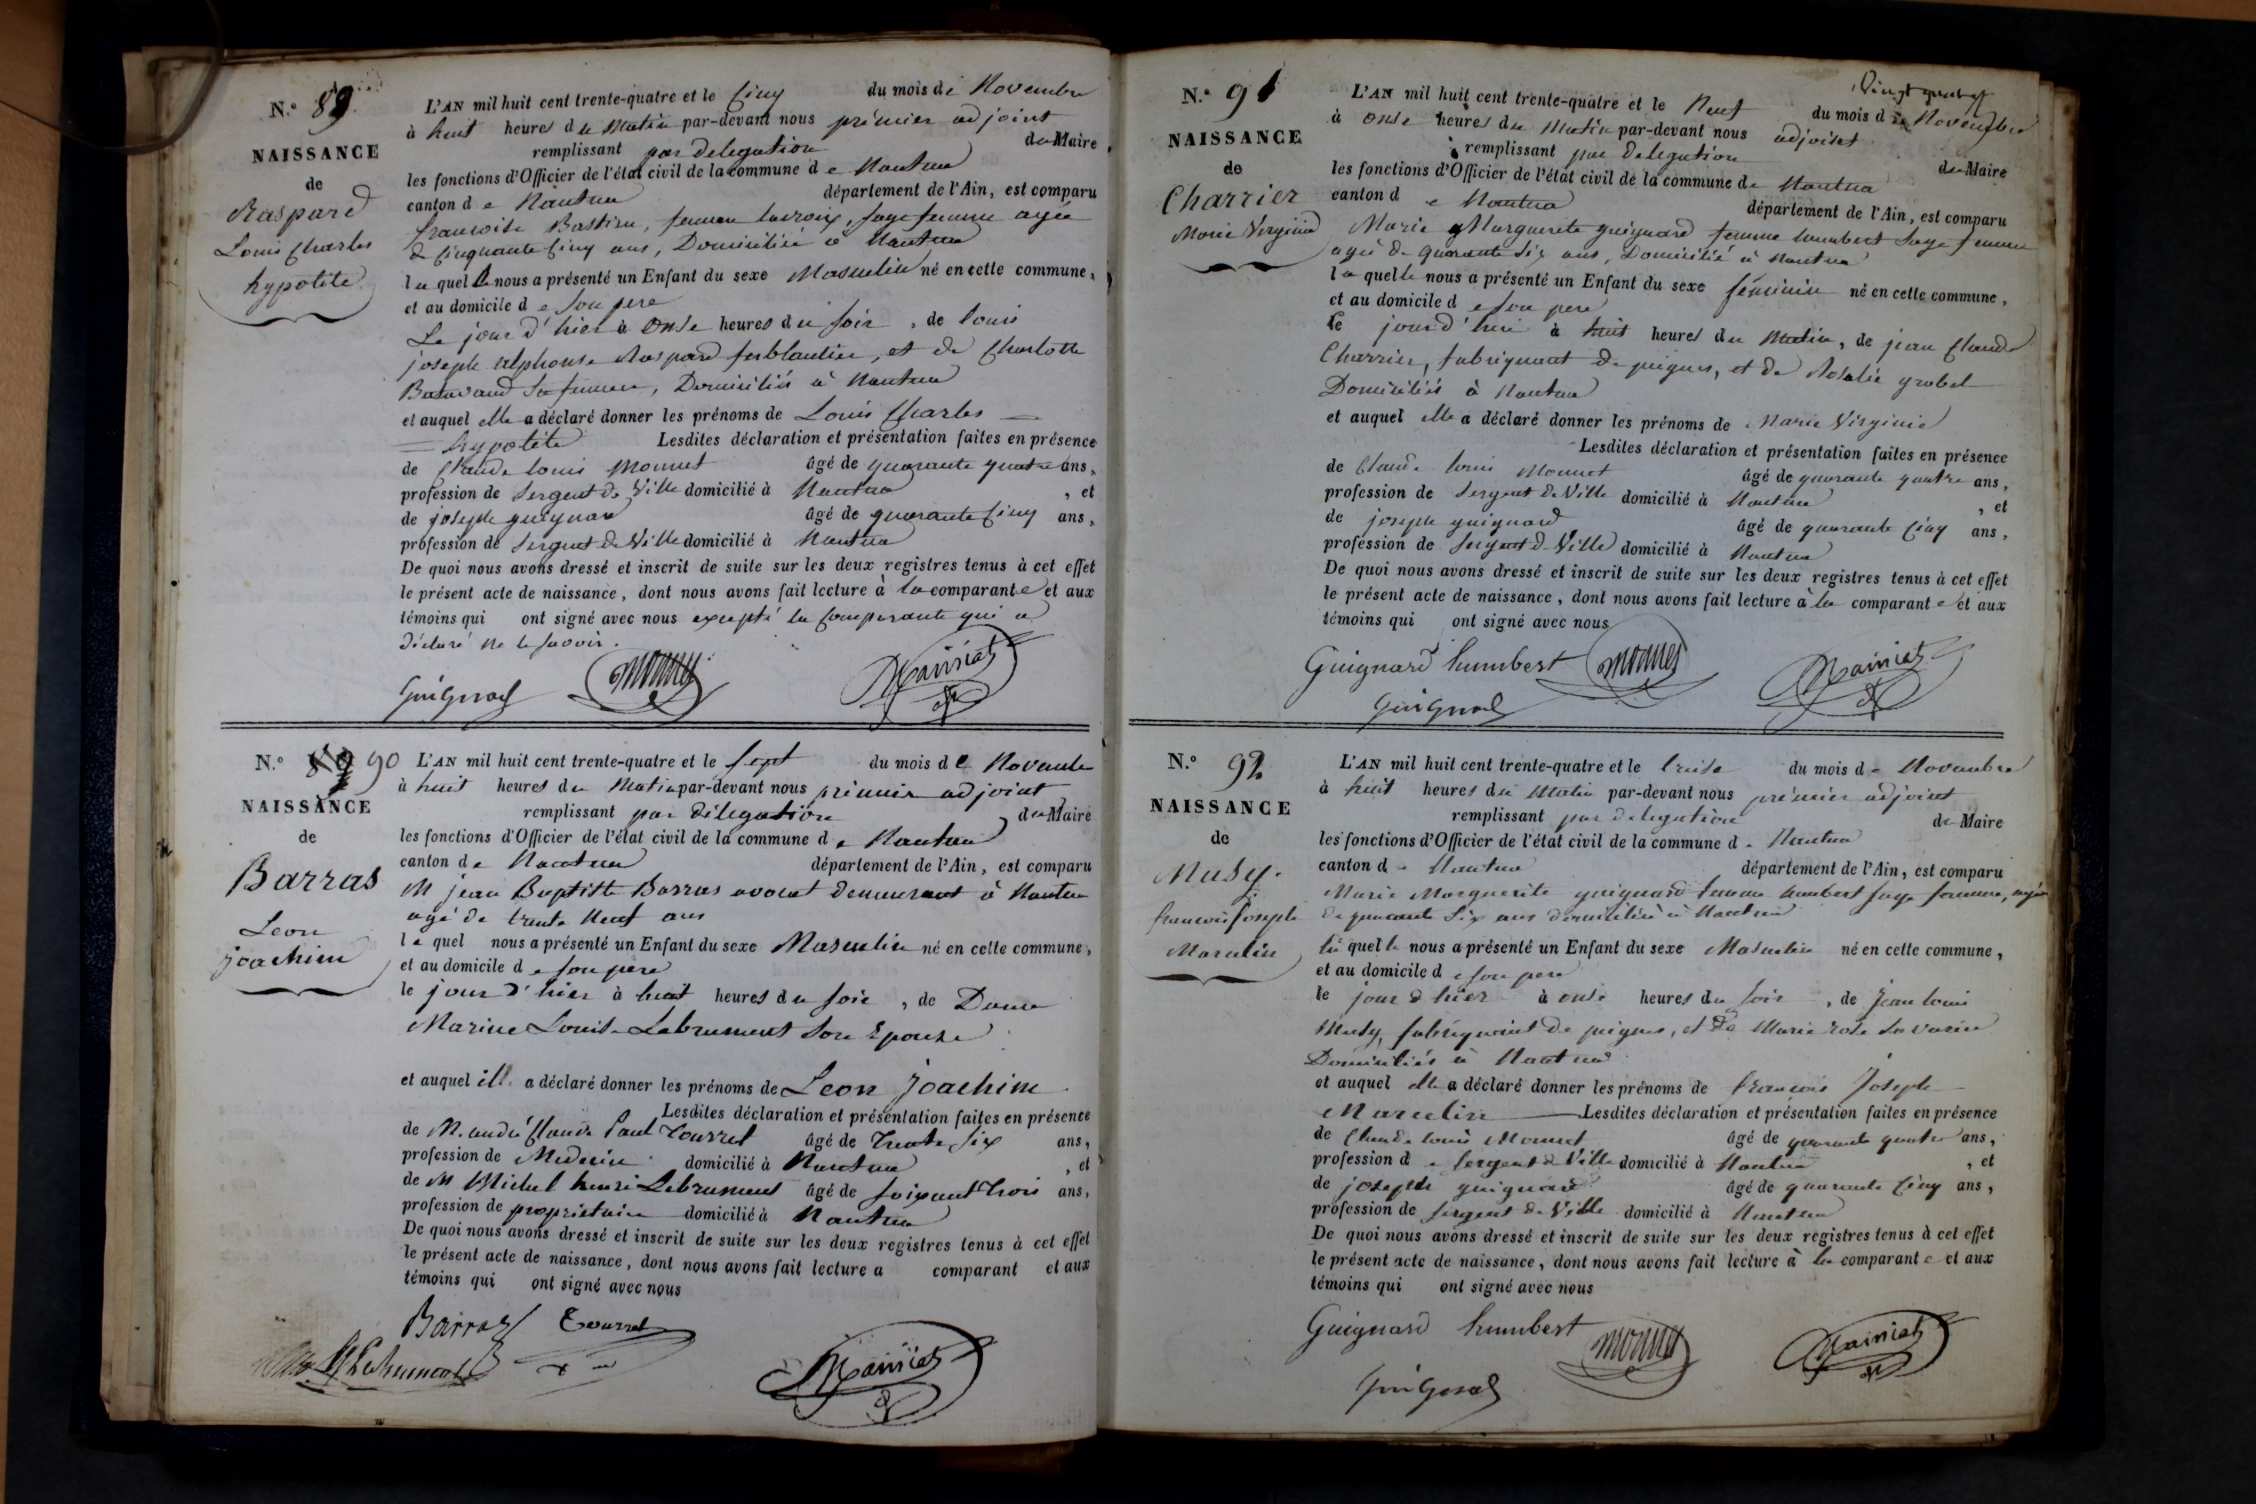 N.º 89.
NAISSANCE
de
Raspard
Louis Charles
hypolite
L'AN mil huit cent trente-quatre et le Cinq du mois de Novembre
à huit heures du Matin par-devant nous prémier adjoint
remplissant par délégation du Maire
les fonctions d'Officier de l'état civil de la commune de Nantua
canton de Nantua département de l'Ain, est comparu
francoise Bastien, femme lacroix, sage femme agée
de Cinquante Cinq ans, Domiciliée à Nantua
laquelle nous a présenté un Enfant du sexe Masculin né en cette commune,
et au domicile de son pere
Le jour d'hier à Onse heures du soir, de louis
joseph alphonse Raspard ferblantier, et de Charlotte
sa femme, Domiciliés à Nantua
et auquel elle a déclaré donner les prénoms de Louis Charles
hypolite Lesdites déclaration et présentation faites en présence
de Claude louis Monnet âgé de quarante quatre ans,
profession de Sergent de Ville domicilié à Nantua, et
de joseph guignard âgé de quarante Cinq ans,
profession de Sergent de Ville domicilié à Nantua
De quoi nous avons dressé et inscrit de suite sur les deux registres tenus à cet effet
le présent acte de naissance, dont nous avons fait lecture à la comparante et aux
témoins qui ont signé avec nous excepté la Comparante qui a
déclaré ne le savoir.
Guignard Monnet Mainiat
N.º 89 90
NAISSANCE
de
Barras
Leon
joachim
L'AN mil huit cent trente-quatre et le Sept du mois de Novembre
à huit heures du Matin par-devant nous prémier adjoint
remplissant par délégation du Maire
les fonctions d'Officier de l'état civil de la commune de Nantua
canton de Nantua département de l'Ain, est comparu
M jean Baptiste Barras avocat demeurant à Nantua
agé de trente Neuf ans
lequel nous a présenté un Enfant du sexe Masculin né en cette commune,
et au domicile de son pere
le jour d'hier à huit heures du soir, de Dame
Marine Louise Lebrument Son Epouse
et auquel il a déclaré donner les prénoms de Leon Joachim
Lesdites déclaration et présentation faites en présence
de M. andré Claude Paul Tourret âgé de Trente Six ans,
profession de Medecin domicilié à Nantua, et
de M Michel henri Lebrument âgé de soixant Trois ans,
profession de propriétaire domicilié à Nantua
De quoi nous avons dressé et inscrit de suite sur les deux registres tenus à cet effet
le présent acte de naissance, dont nous avons fait lecture a comparant et aux
témoins qui ont signé avec nous
Barras Tourret
Mainiat
N.º 91
NAISSANCE
de
Charrier
Marie Virginie
Vingt quatre
L'AN mil huit cent trente-quatre et le Neuf du mois de Novembre
à onse heures du Matin par-devant nous adjoint
remplissant par délégation du Maire
les fonctions d'Officier de l'état civil de la commune de Nantua
canton de Nantua département de l'Ain, est comparu
Marie Marguerite guignard femme humbert Sage femme
agée de quarante Six ans, Domiciliée à Nantua
laquelle nous a présenté un Enfant du sexe féminin né en cette commune,
et au domicile de son pere
le jour d'hier à huit heures du Matin, de jean Claude
Charrier, fabriquant de peignes, et de Rosalie grobel
Domiciliés à Nantua
et auquel elle a déclaré donner les prénoms de Marie Virginie
Lesdites déclaration et présentation faites en présence
de Claude louis Monnet âgé de quarante quatre ans,
profession de Sergent de Ville domicilié à Nantua, et
de joseph guignard âgé de quarante Cinq ans,
profession de Sergent de Ville domicilié à Nantua
De quoi nous avons dressé et inscrit de suite sur les deux registres tenus à cet effet
le présent acte de naissance, dont nous avons fait lecture à la comparante et aux
témoins qui ont signé avec nous
Guignard humbert Monnet Mainiat
Guignard
N.º 92
NAISSANCE
de
Musy.
francois Joseph
Marcelin
L'AN mil huit cent trente-quatre et le treise du mois de Novembre
à huit heures du Matin par-devant nous prémier adjoint
remplissant par délégation du Maire
les fonctions d'Officier de l'état civil de la commune de Nantua
canton de Nantua département de l'Ain, est comparu
Marie Marguerite guignard femme humbert sage femme, agée
de quarante Six ans domiciliée à Nantua
laquelle nous a présenté un Enfant du sexe Masculin né en cette commune,
et au domicile de son pere
le jour d'hier à onse heures du soir, de Jean louis
Musy, fabriquant de peignes, et de Marie rose Savarin
Domiciliés à Nantua
et auquel elle a déclaré donner les prénoms de francois Joseph
Marcelin Lesdites déclaration et présentation faites en présence
de Claude louis Monnet âgé de quarante quatre ans,
profession de Sergent de Ville domicilié à Nantua, et
de joseph guignard âgé de quarante Cinq ans,
profession de Sergent de Ville domicilié à Nantua
De quoi nous avons dressé et inscrit de suite sur les deux registres tenus à cet effet
le présent acte de naissance, dont nous avons fait lecture à la comparante et aux
témoins qui ont signé avec nous
Guignard humbert Monnet Mainiat
Guignard